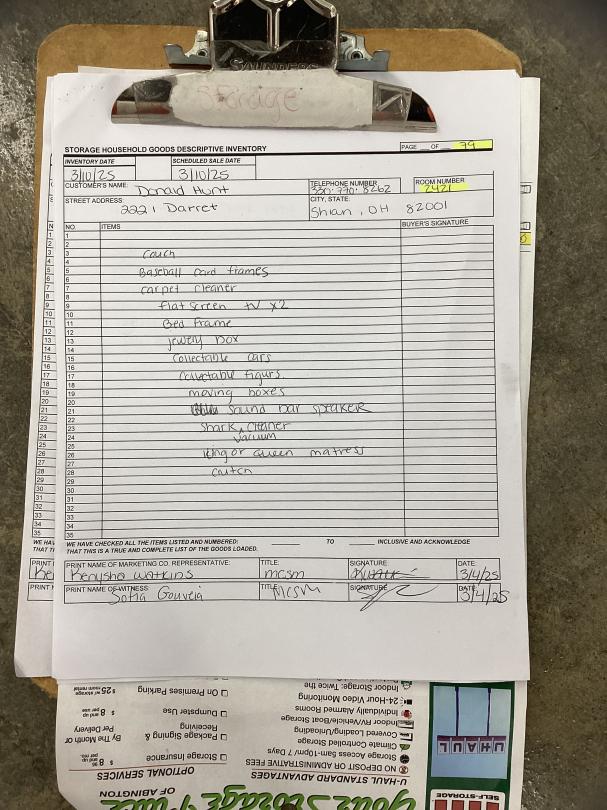 SAUNDERS
Storage
STORAGE HOUSEHOLD GOODS DESCRIPTIVE INVENTORY
PAGE __ OF __ 79
INVENTORY DATE
SCHEDULED SALE DATE
3/10/25
3/10/25
CUSTOMER'S NAME: Donald Hunt
TELEPHONE NUMBER
330-770-8262
ROOM NUMBER
2421
STREET ADDRESS: 2221 Darret
CITY, STATE:
Shian, OH 82001
NO. ITEMS BUYER'S SIGNATURE
1
2
3 couch
4
5 Baseball card frames
6
7 carpet cleaner
8
9 flat screen tv x2
10
11 Bed frame
12
13 jewely box
14
15 collectable cars
16
17 colletable figurs.
18
19 moving boxes
20
21 sound bar speaker
22
23 shark cleaner
24 vacuum
25
26 king or queen matress
27
28 crutch
29
30
31
32
33
34
35
WE HAVE CHECKED ALL THE ITEMS LISTED AND NUMBERED: ______ TO ______ INCLUSIVE AND ACKNOWLEDGE
THAT THIS IS A TRUE AND COMPLETE LIST OF THE GOODS LOADED.
PRINT NAME OF MARKETING CO. REPRESENTATIVE: TITLE: SIGNATURE: DATE:
Kenysha Watkins mcsm 3/4/25
PRINT NAME OF WITNESS: TITLE: SIGNATURE: DATE:
Sofia Gouveia MCSM 3/4/25
On Premises Parking
$25 per storage room rental
Dumpster Use
$8 and up per use
Package Signing & Receiving
By The Month or Per Delivery
Storage Insurance
OPTIONAL SERVICES
Indoor Storage: Twice the
24-Hour Video
Individually Alarmed Rooms
Indoor RV/Vehicle/Boat Storage
Covered Loading/Unloading
Climate Controlled Storage
Storage Access 5am-10pm/ 7 Days
NO DEPOSIT OR ADMINISTRATIVE FEES
U-HAUL STANDARD ADVANTAGES
U-HAUL
SELF-STORAGE
OF ABINGTON
Your Storage Place